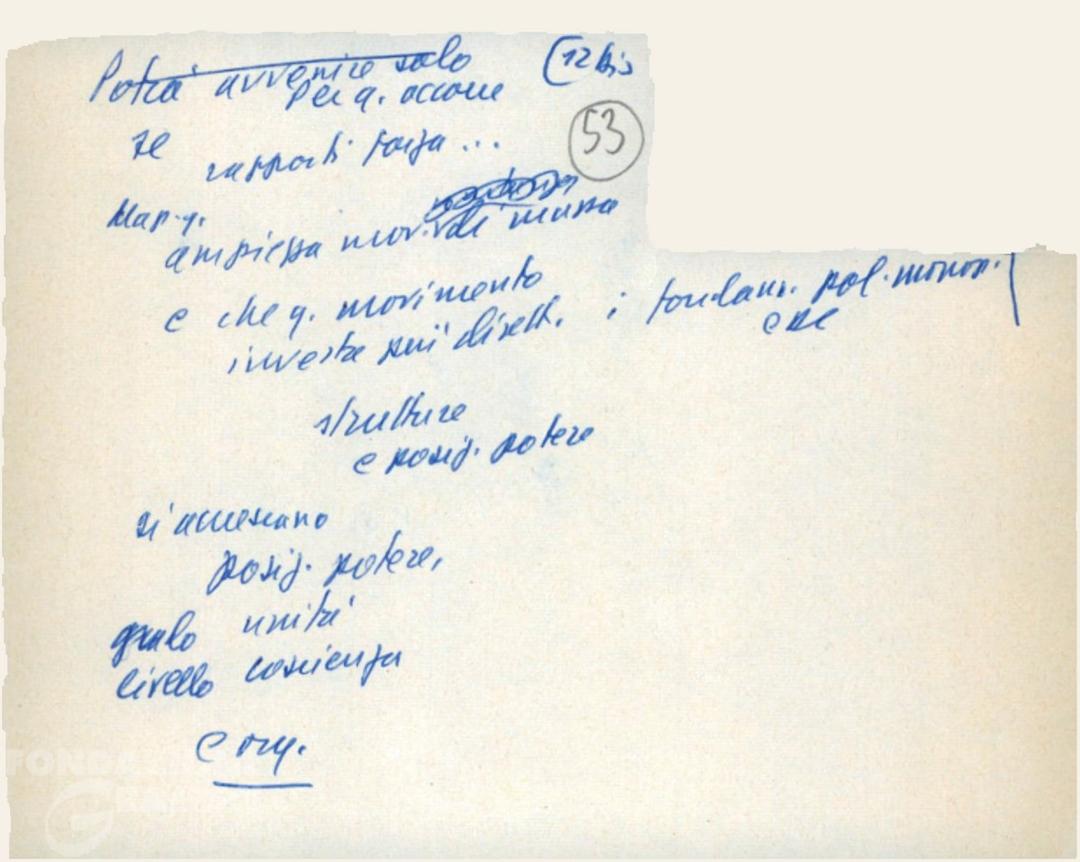 Potrà avvenire solo (12 bis
per q. occorre
53
se rapporti forza...
Ma p. q.
ampiezza mov. di massa
e che q. movimento
investa più dirett. i fondam. pol. monop.
e del
strutture
e posiz. potere
si accrescano
posiz. potere,
grado unità
livello coscienza
e org.
FONDAZIONE